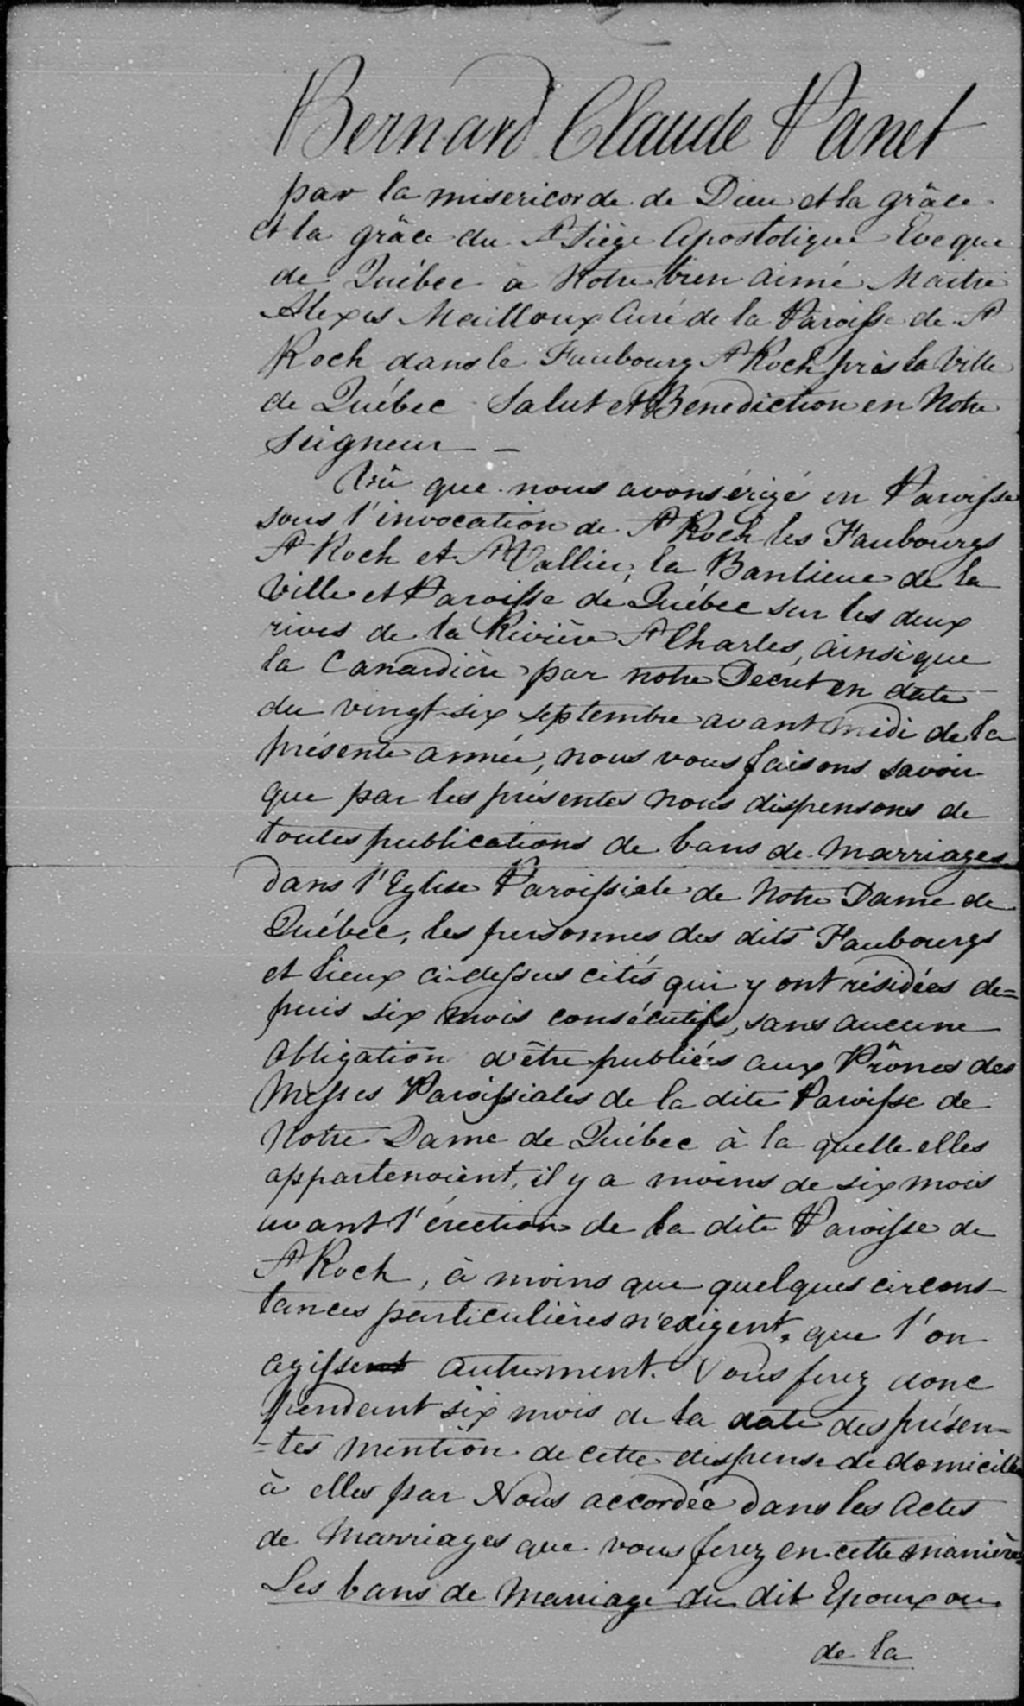 Bernard Claude Panet
par la misericorde de Dieu et la grâce
et la grâce du St Siège Apostolique Evêque
de Québec à Notre bien aimé Maitre
Alexis Mailloux Curé de la Paroisse de St
Roch dans le Faubourg St Roch près la Ville
de Québec Salut et Benediction en Notre
Seigneur —
Vû que nous avons érigé en Paroisse
sous l'invocation de St Roch les Faubourgs
St Roch et St Vallier, la Banlieue de la
Ville et Paroisse de Québec sur les deux
rives de la Rivière St Charles, ainsi que
la Canardière par notre Decret en date
du vingt-six septembre avant midi de la
présente année, nous vous faisons savoir
que par les présentes nous dispensons de
toutes publications de bans de marriages
dans l'Eglise Paroissiale de Notre Dame de
Québec, les personnes des dits Faubourgs
et lieux ci-dessus cités qui y ont résidées de=
puis six mois consécutifs, sans aucune
obligation d'être publiées aux Prônes des
Messes Paroissiales de la dite Paroisse de
Notre Dame de Québec à la quelle elles
appartenoient, il y a moins de six mois
avant l'érection de la dite Paroisse de
St Roch, à moins que quelques circons-
tances particulières n'exigent, que l'on
agissent autrement. Vous ferez donc
pendant six mois de la date des présen-
-tes mention de cette dispense de domicille
à elles par Nous accordée dans les Actes
de Marriages que vous ferez en cette manière
Les bans de Mariage du dit Epoux ou
de la